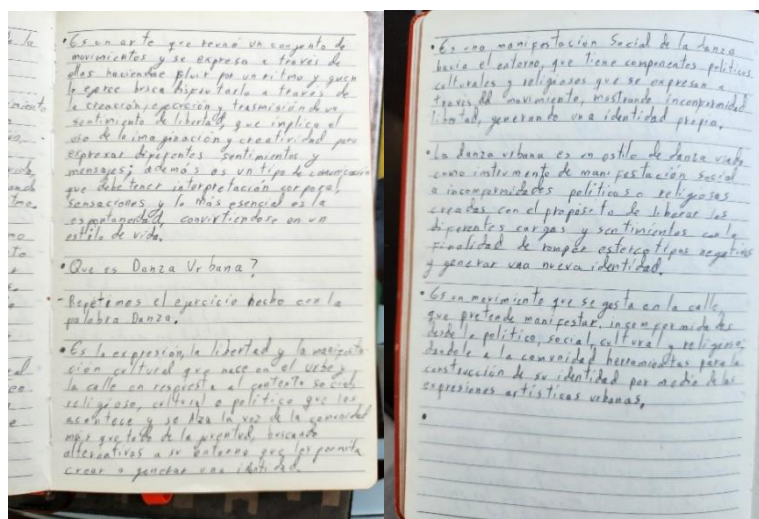 • Es un arte que reune un conjunto de
movimientos y se expresa a través de
ellos haciendose fluir por un ritmo y quien
lo ejerce busca disfrutarlo a través de
la creación, ejecución y trasmisión de un
sentimiento de libertad, que implica el
uso de la imaginación y creatividad para
expresar diferentes sentimientos y
mensajes; además es un tipo de comunicación
que debe tener interpretación corporal,
sensaciones y lo más esencial es la
espontaneidad, convirtiendose en un
estilo de vida.
• Que es Danza Urbana?
- Repetimos el ejercicio hecho con la
palabra Danza.
• Es la expresión, la libertad y la manifesta-
ción cultural que nace en el urbe y
la calle en respuesta al contexto social
religioso, cultural o político que los
acontece y se Alza la voz de la comunidad
más que todo de la juventud, buscando
alternativas a su entorno que les permita
crear o generar una identidad.
• Es una manifestación Social de la danza
hacia el entorno, que tiene componentes políticos
culturales y religiosos que se expresan a
través del movimiento, mostrando inconformidad
libertad, generando una identidad propia.
• La danza urbana es un estilo de danza usado
como instrumento de manifestación social
a inconformidades políticas o religiosas
creadas con el propósito de liberar las
diferentes cargas y sentimientos con la
finalidad de romper estereotipos negativos
y generar una nueva identidad.
• Es un movimiento que se gesta en la calle
que pretende manifestar, inconformidades
desde lo político, social, cultural y religioso;
dandole a la comunidad herramientas para la
construcción de su identidad por medio de las
expresiones artísticas urbanas.
•